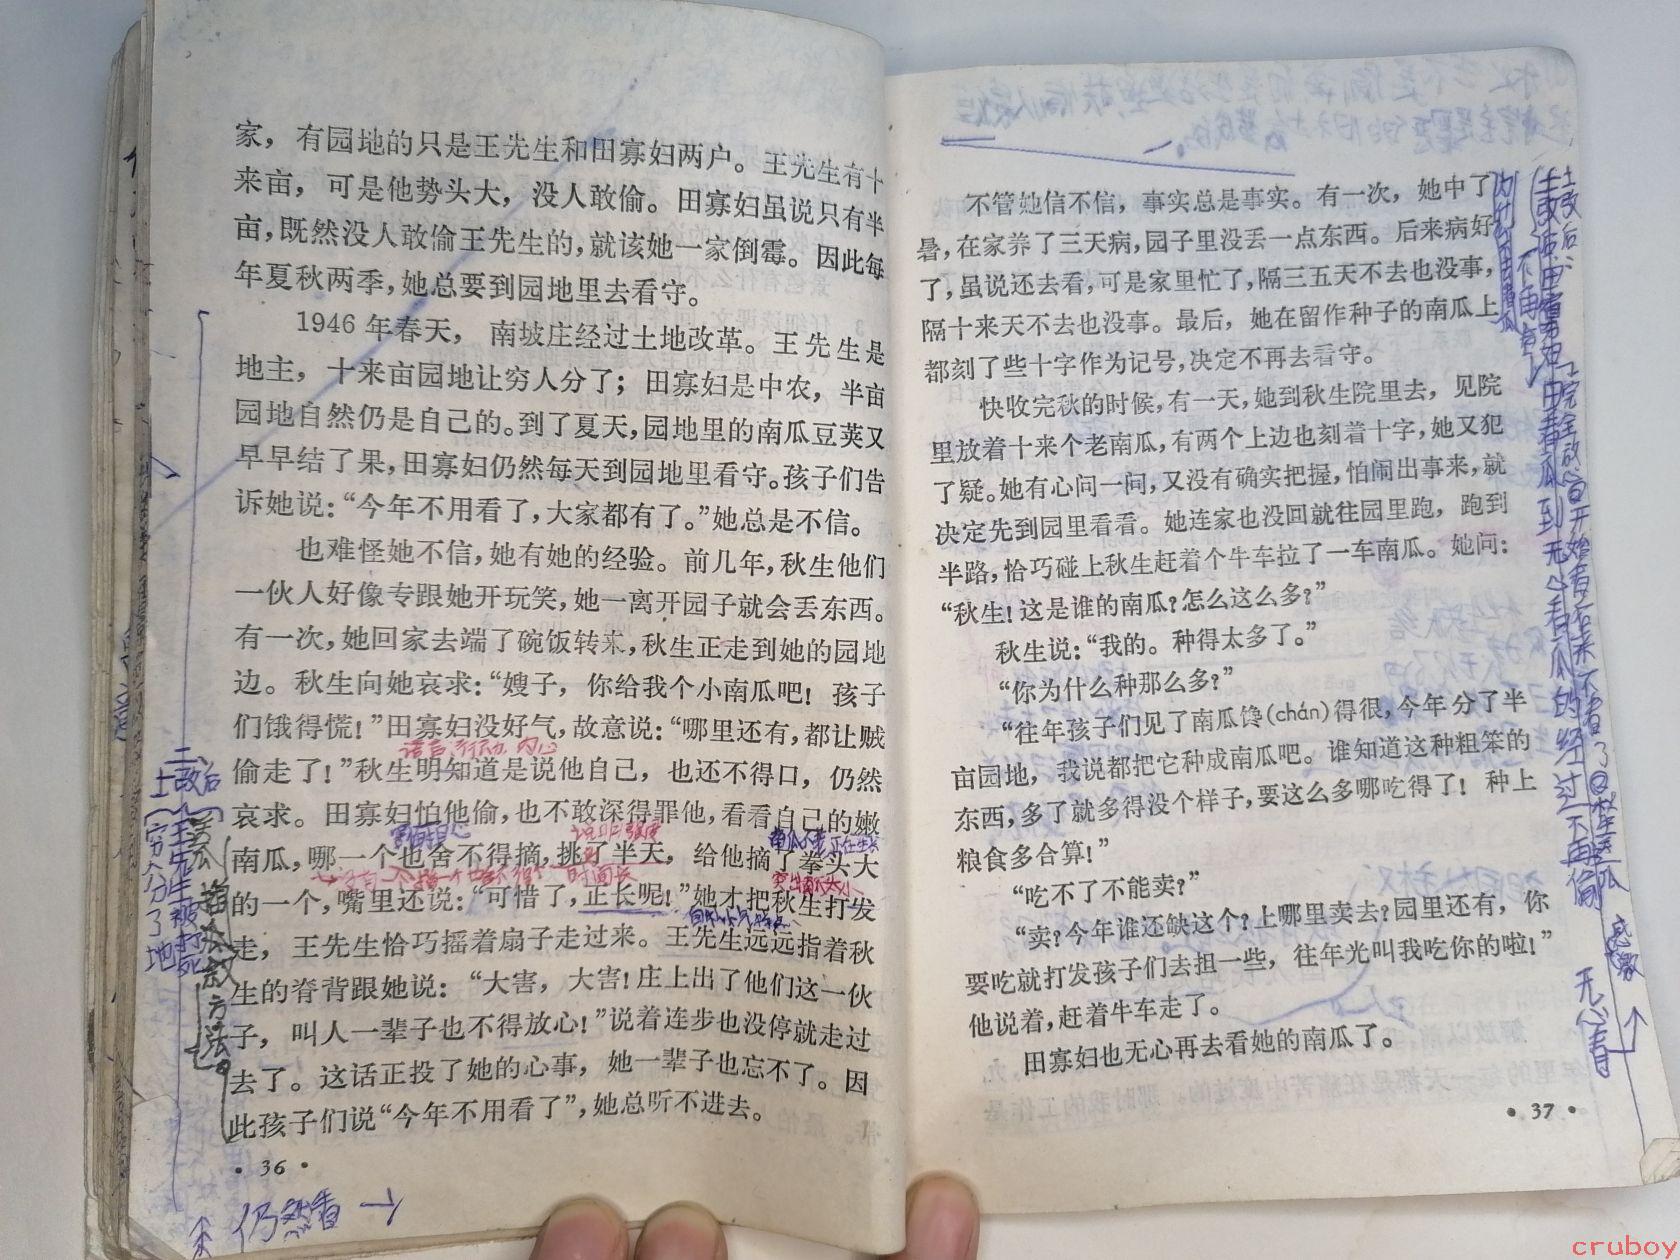 家，有园地的只是王先生和田寡妇两户。王先生有十
来亩，可是他势头大，没人敢偷。田寡妇虽说只有半
亩，既然没人敢偷王先生的，就该她一家倒霉。因此每
年夏秋两季，她总要到园地里去看守。
1946年春天，南坡庄经过土地改革。王先生是
地主，十来亩园地让穷人分了；田寡妇是中农，半亩
园地自然仍是自己的。到了夏天，园地里的南瓜豆荚又
早早结了果，田寡妇仍然每天到园地里看守。孩子们告
诉她说：“今年不用看了，大家都有了。”她总是不信。
也难怪她不信，她有她的经验。前几年，秋生他们
一伙人好像专跟她开玩笑，她一离开园子就会丢东西。
有一次，她回家去端了碗饭转来，秋生正走到她的园地
边。秋生向她哀求：“嫂子，你给我个小南瓜吧！孩子
们饿得慌！”田寡妇没好气，故意说：“哪里还有，都让贼
语言 行动 内心
偷走了！”秋生明知道是说他自己，也还不得口，仍然
哀求。田寡妇怕他偷，也不敢深得罪他，看看自己的嫩
南瓜，哪一个也舍不得摘，挑了半天，给他摘了拳头大
时间长
的一个，嘴里还说：“可惜了，正长呢！”她才把秋生打发
走，王先生恰巧摇着扇子走过来。王先生远远指着秋
生的脊背跟她说：“大害，大害！庄上出了他们这一伙
子，叫人一辈子也不得放心！”说着连步也没停就走过
去了。这话正投了她的心事，她一辈子也忘不了。因
此孩子们说“今年不用看了”，她总听不进去。
• 36 •
仍然看
二、
土改后
穷人分了地
不管她信不信，事实总是事实。有一次，她中了
暑，在家养了三天病，园子里没丢一点东西。后来病好
了，虽说还去看，可是家里忙了，隔三五天不去也没事，
隔十来天不去也没事。最后，她在留作种子的南瓜上
都刻了些十字作为记号，决定不再去看守。
快收完秋的时候，有一天，她到秋生院里去，见院
里放着十来个老南瓜，有两个上边也刻着十字，她又犯
了疑。她有心问一问，又没有确实把握，怕闹出事来，就
决定先到园里看看。她连家也没回就往园里跑，跑到
半路，恰巧碰上秋生赶着个牛车拉了一车南瓜。她问：
“秋生！这是谁的南瓜？怎么这么多？”
秋生说：“我的。种得太多了。”
“你为什么种那么多？”
“往年孩子们见了南瓜馋(chán)得很，今年分了半
亩园地，我说都把它种成南瓜吧。谁知道这种粗笨的
东西，多了就多得没个样子，要这么多哪吃得了！种上
粮食多合算！”
“吃不了不能卖？”
“卖？今年谁还缺这个？上哪里卖去？园里还有，你
要吃就打发孩子们去担一些，往年光叫我吃你的啦！”
他说着，赶着牛车走了。
田寡妇也无心再去看她的南瓜了。
• 37 •
土改后
不再看
感激
无心看
cruboy